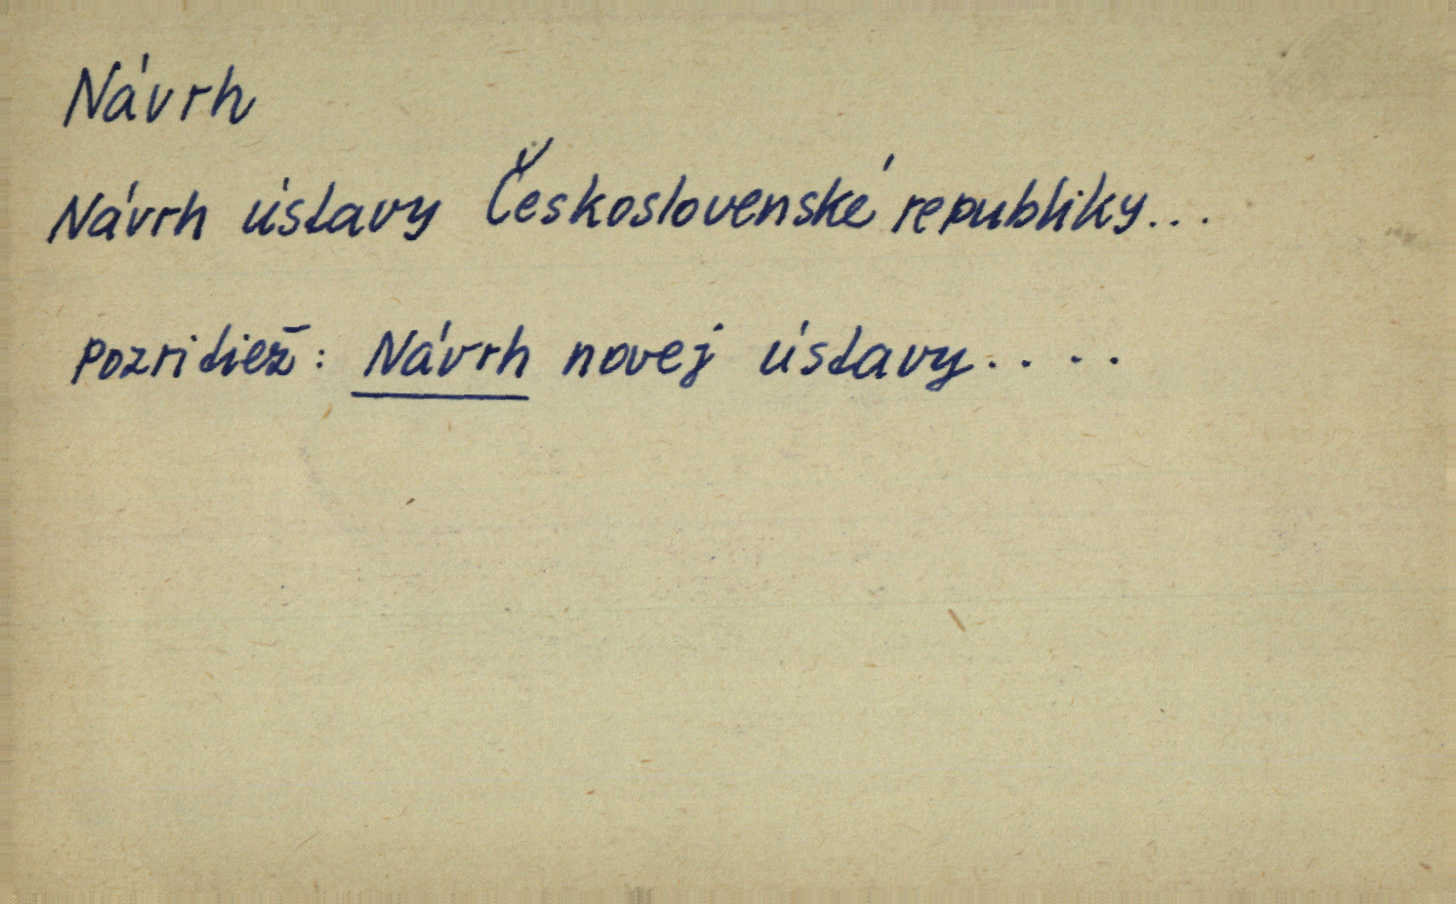 Návrh
Návrh ústavy Československé republiky...
pozri tiež: Návrh novej ústavy....